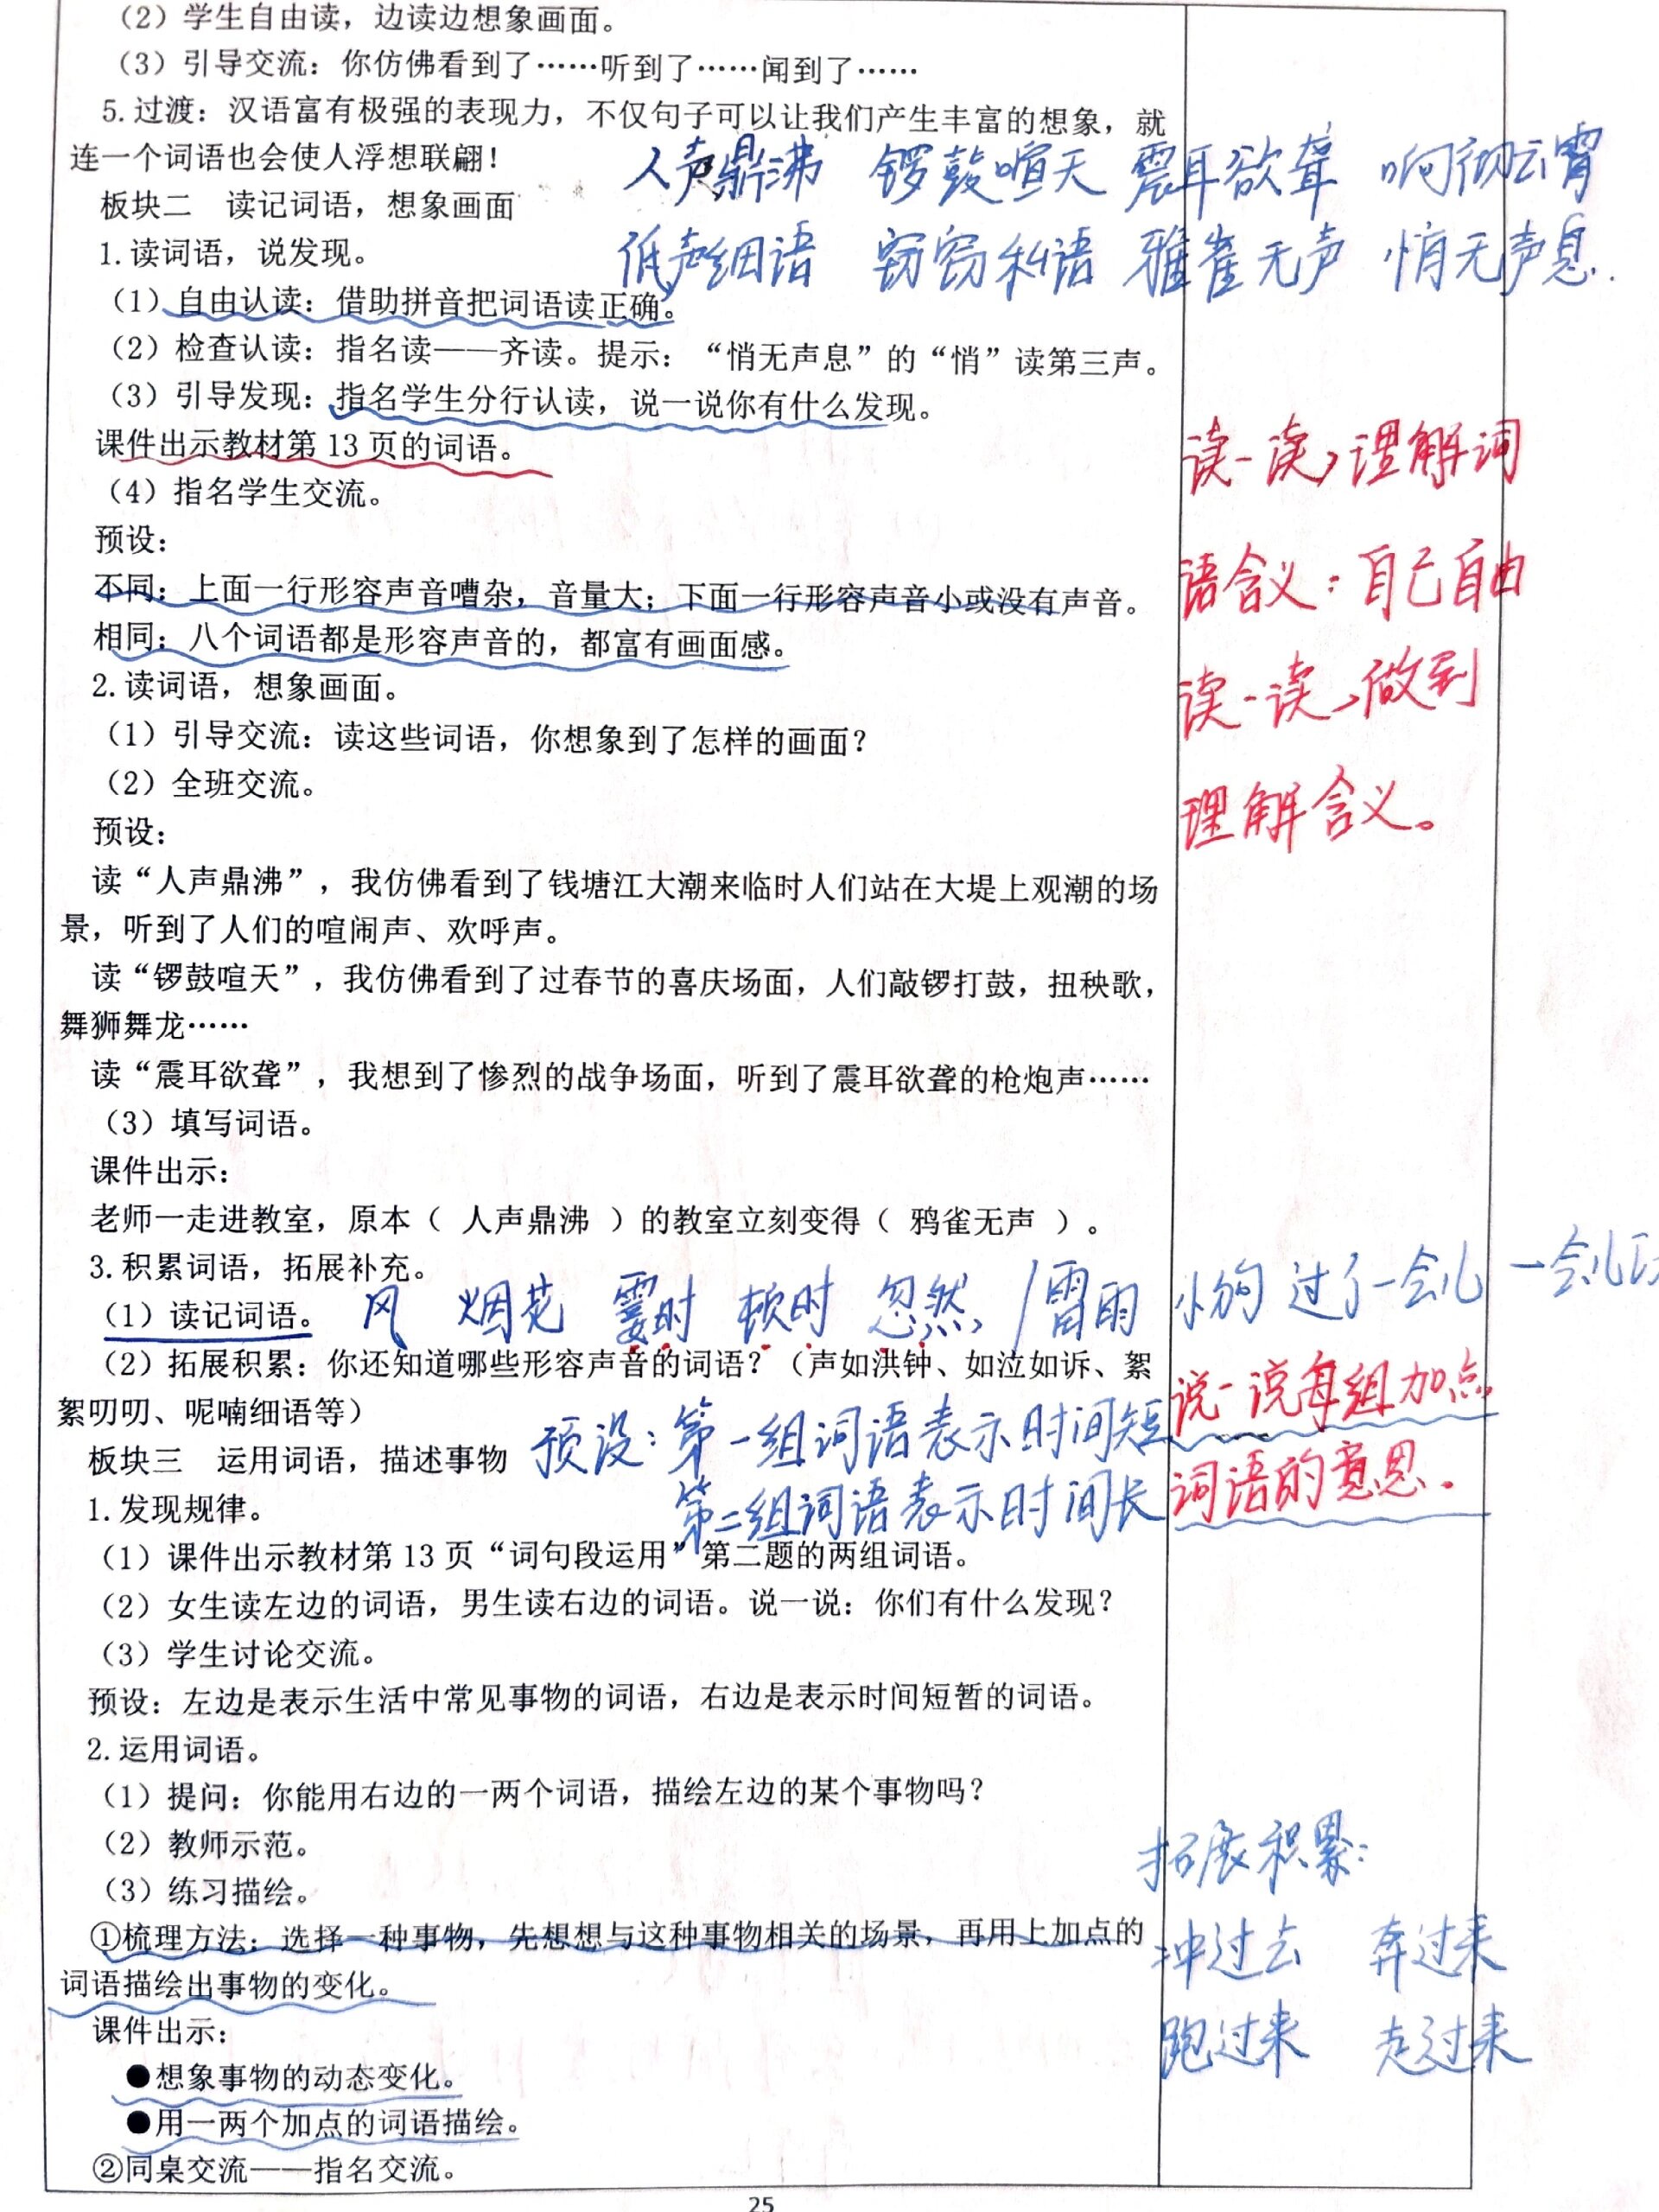 （2）学生自由读，边读边想象画面。
（3）引导交流：你仿佛看到了……听到了……闻到了……
5.过渡：汉语富有极强的表现力，不仅句子可以让我们产生丰富的想象，就
连一个词语也会使人浮想联翩！
人声鼎沸 锣鼓喧天 震耳欲聋 响彻云霄
板块二 读记词语，想象画面
低声细语 窃窃私语 雅雀无声 悄无声息.
1.读词语，说发现。
（1）自由认读：借助拼音把词语读正确。
（2）检查认读：指名读——齐读。提示：“悄无声息”的“悄”读第三声。
（3）引导发现：指名学生分行认读，说一说你有什么发现。
课件出示教材第 13 页的词语。
读一读，理解词
（4）指名学生交流。
预设：
不同：上面一行形容声音嘈杂，音量大；下面一行形容声音小或没有声音。
语含义：自己自由
相同：八个词语都是形容声音的，都富有画面感。
2.读词语，想象画面。
读一读，做到
（1）引导交流：读这些词语，你想象到了怎样的画面？
（2）全班交流。
理解含义。
预设：
读“人声鼎沸”，我仿佛看到了钱塘江大潮来临时人们站在大堤上观潮的场
景，听到了人们的喧闹声、欢呼声。
读“锣鼓喧天”，我仿佛看到了过春节的喜庆场面，人们敲锣打鼓，扭秧歌，
舞狮舞龙……
读“震耳欲聋”，我想到了惨烈的战争场面，听到了震耳欲聋的枪炮声……
（3）填写词语。
课件出示：
老师一走进教室，原本（ 人声鼎沸 ）的教室立刻变得（ 鸦雀无声 ）。
3.积累词语，拓展补充。
（1）读记词语。
风 烟花 霎时 顿时 忽然 / 雷雨 小狗 过了一会儿 一会儿
（2）拓展积累：你还知道哪些形容声音的词语？（声如洪钟、如泣如诉、絮
絮叨叨、呢喃细语等）
说一说每组加点
词语的意思.
预设：第一组词语表示时间短
第二组词语表示时间长
板块三 运用词语，描述事物
1.发现规律。
（1）课件出示教材第 13 页“词句段运用”第二题的两组词语。
（2）女生读左边的词语，男生读右边的词语。说一说：你们有什么发现？
（3）学生讨论交流。
预设：左边是表示生活中常见事物的词语，右边是表示时间短暂的词语。
2.运用词语。
（1）提问：你能用右边的一两个词语，描绘左边的某个事物吗？
（2）教师示范。
拓展积累：
（3）练习描绘。
①梳理方法：选择一种事物，先想想与这种事物相关的场景，再用上加点的
词语描绘出事物的变化。
冲过去 奔过来
跑过来 走过来
课件出示：
●想象事物的动态变化。
●用一两个加点的词语描绘。
②同桌交流——指名交流。
25